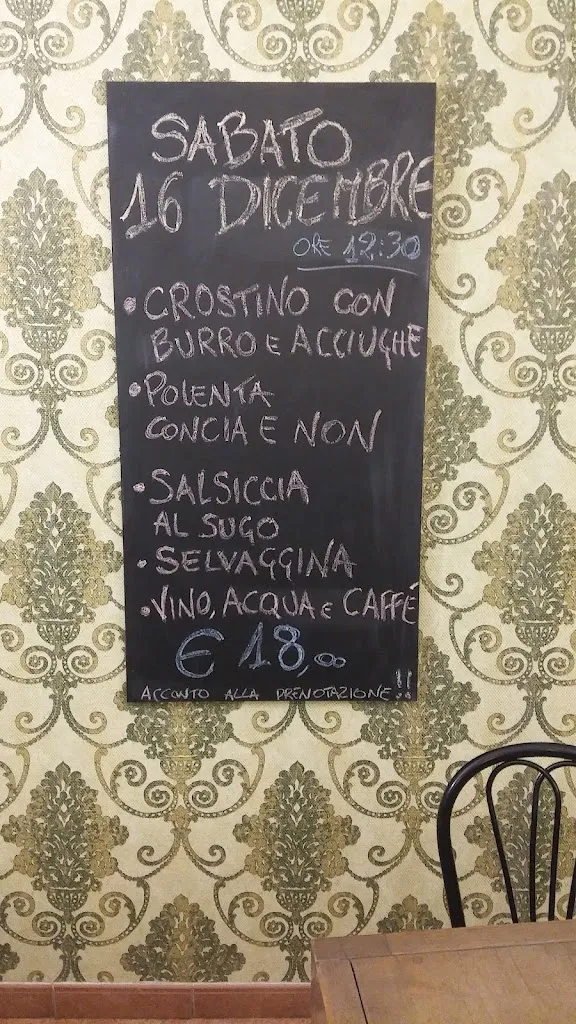 SABATO
16 DICEMBRE
ORE 12:30
• CROSTINO CON
BURRO E ACCIUGHE
• POLENTA
CONCIA E NON
• SALSICCIA
AL SUGO
• SELVAGGINA
• VINO, ACQUA E CAFFÉ
€ 18,00
ACCONTO ALLA PRENOTAZIONE!!